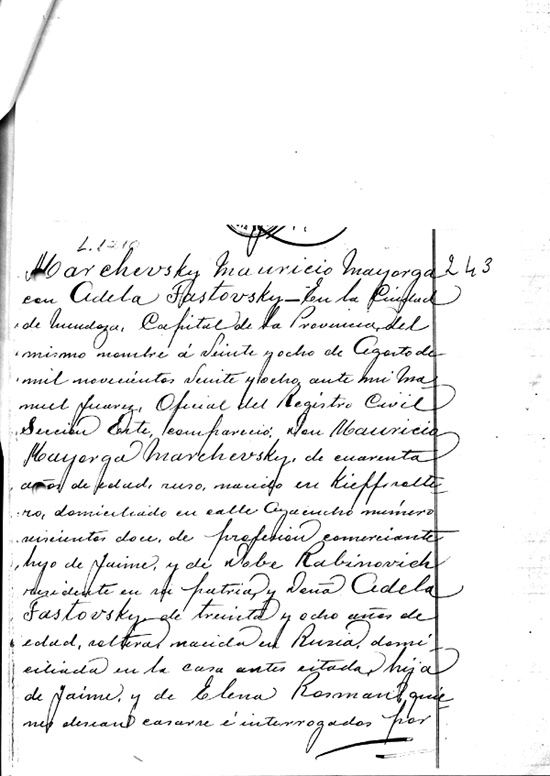 Marchevsky Mauricio Mayorga 243
con Adela Fastovsky — En la Ciudad
de Mendoza, Capital de la Provincia del
mismo nombre á veinte y ocho de Agosto de
mil novecientos veinte y ocho, ante mi Ma
nuel Juarez, Oficial del Registro Civil
Sección Este, compareció: Don Mauricio
Mayorga Marchevsky, de cuarenta
años de edad, ruso, nacido en Kieff, solte
ro, domiciliado en calle Ayacucho número
seiscientos doce, de profesión comerciante
hijo de Jaime, y de Dobe Rabinovich
residente en su patria, y Doña Adela
Fastovsky, de treinta y ocho años de
edad, soltera, nacida en Rusia, domi
ciliada en la casa antes citada, hija
de Jaime, y de Elena Rosman, quie
nes desean casarse é interrogados por